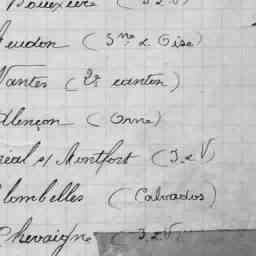 Bouexière (I & V)
eudon (Sne & Oise)
Nantes (2e canton)
Alençon (Orne)
réal s/ Montfort (I & V)
lombelles (Calvados)
Chevaigné (I & V)